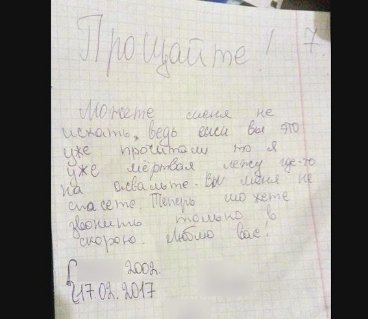 Прощайте! 7
Можете меня не
искать, ведь если вы это
уже прочитали то я
уже мёртвая лежу где-то
на асвальте. Вы меня не
спасете. Теперь можете
звонить только в
скорою. Люблю вас!
2002.
17.02.2017